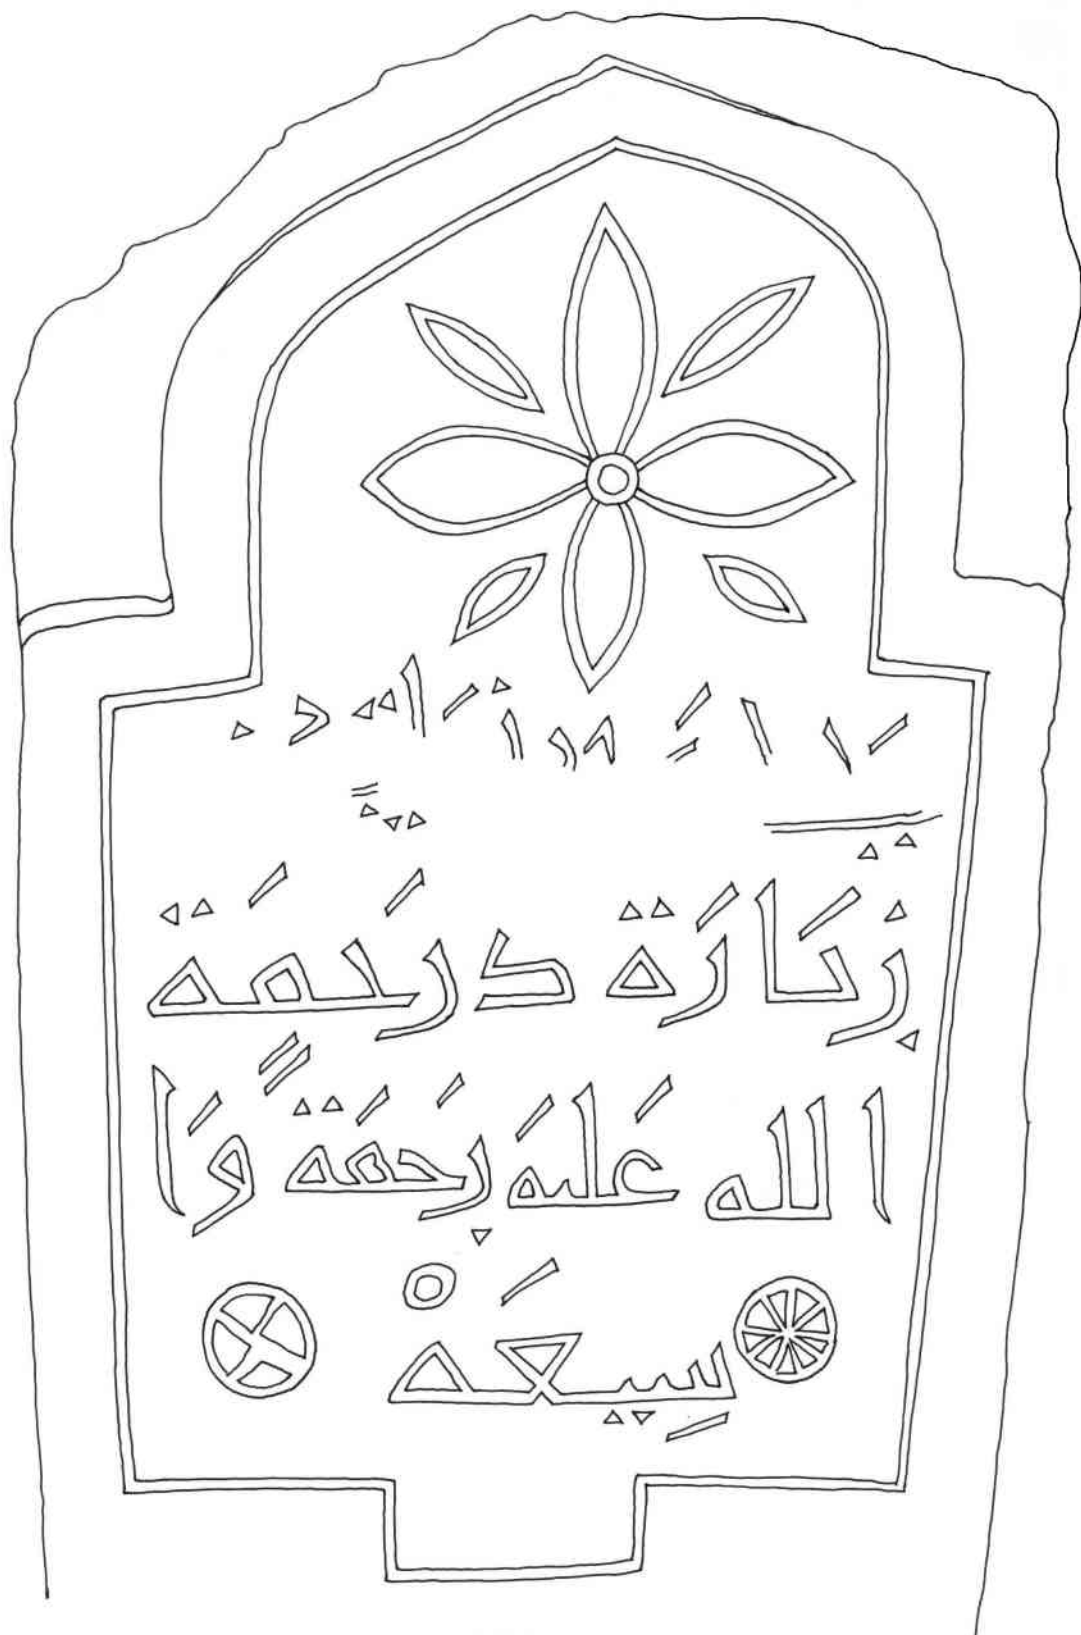 زِيَارَة درَحمَة
الله عَليَه رَحمَةً وَا
سِيعَهْ